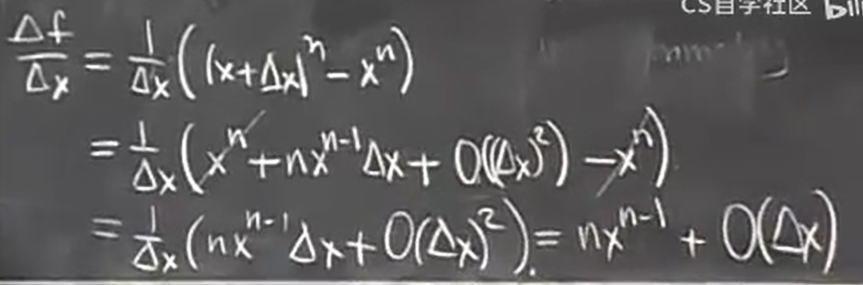 CS自学社区 bili
Δf/Δx = 1/Δx ((x+Δx)^n − x^n)
= 1/Δx (x^n + nx^{n-1}Δx + O((Δx)^2) − x^n)
= 1/Δx (nx^{n-1}Δx + O(Δx)^2) = nx^{n-1} + O(Δx)